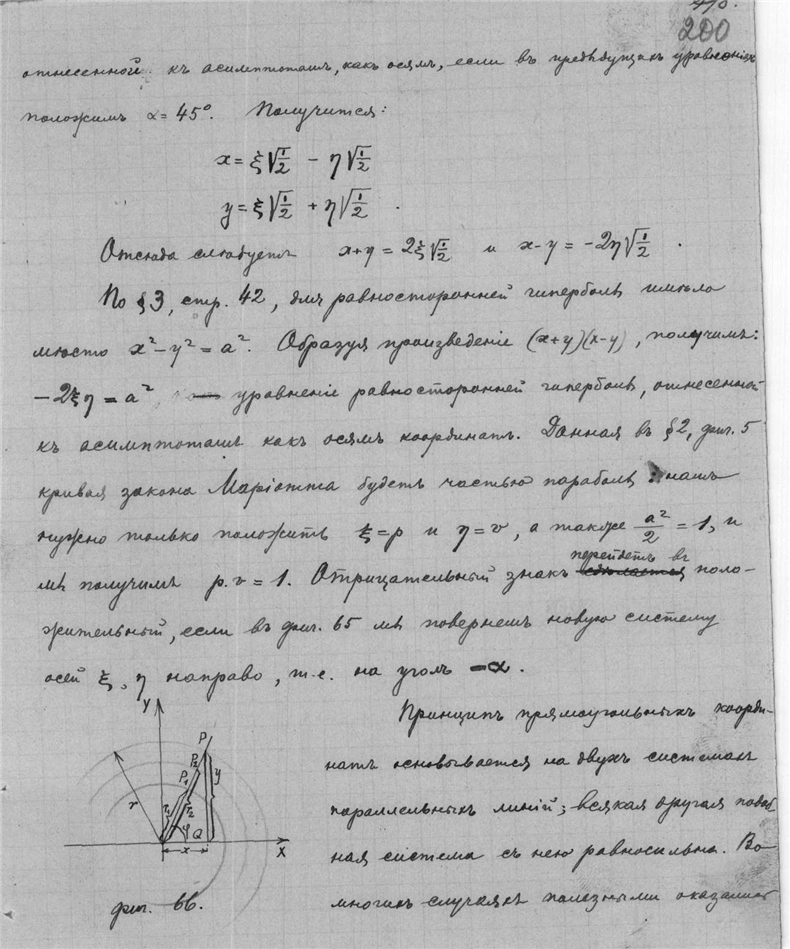 200
отнесенной къ асимптотамъ, какъ осямъ, если въ предыдущихъ уравненіяхъ
положимъ α = 45°. Получится:
x = ξ√1/2 − η√1/2
y = ξ√1/2 + η√1/2 .
Отсюда слѣдуетъ x+y = 2ξ√1/2 и x−y = −2η√1/2 .
По §3, стр. 42, для равносторонней гиперболы имѣло
мѣсто x² − y² = a². Образуя произведеніе (x+y)(x−y), получимъ:
−2ξη = a², уравненіе равносторонней гиперболы, отнесенной
къ асимптотамъ какъ осямъ координатъ. Данная въ §2, фиг. 5
кривая закона Маріотта будетъ частью параболы: намъ
нужно только положить ξ=p и η=v, а также a²/2 = 1, и
мы получимъ p.v = 1. Отрицательный знакъ перейдетъ въ поло-
жительный, если въ фиг. 65 мы повернемъ новую систему
осей ξ, η направо, т.е. на уголъ −α.
Принципъ прямоугольныхъ коорди-
натъ основывается на двухъ системахъ
параллельныхъ линій; всякая другая подоб
ная система съ нею равносильна. Во
многихъ случаяхъ полезными оказались
Y
P
P₂
P₁
y
r
r₁
r₂
φ
Q
x
X
фиг. 66.